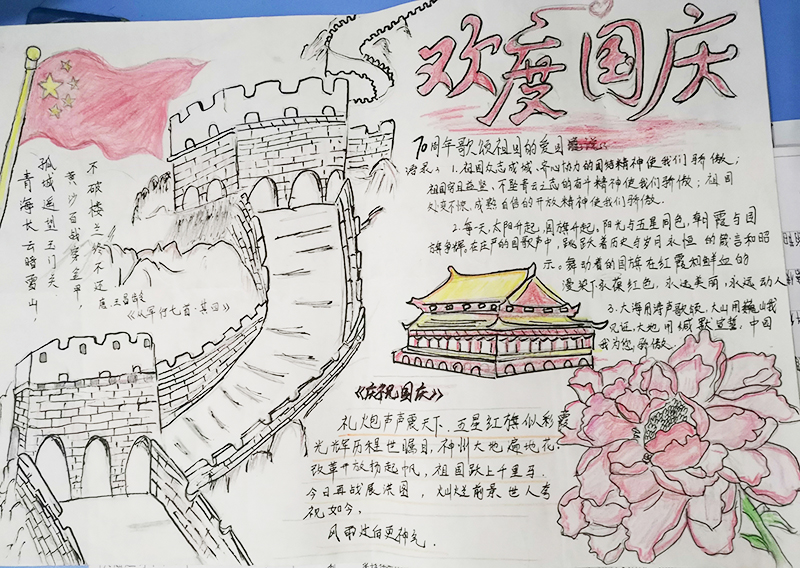 欢度国庆
70周年歌颂祖国的爱国
1.祖国众志成城、齐心协力的团结精神使我们骄傲；
祖国穷且益坚、不坠青云之志的奋斗精神使我们骄傲；祖国
处变不惊、成熟自信的开放精神使我们骄傲.
2.每一天太阳升起,国旗升起,阳光与五星同色,朝霞与国
旗争辉,在庄严的国歌声中,跳跃着历史与岁月永恒的箴言和昭
示。舞动着的国旗在红霞和鲜血的
浸染下,永葆红色,永远美丽,永远动人
3.大海用涛声歌颂,大山用巍峨
见证,大地用缄默宣誓,中国
我为您骄傲.
不破楼兰终不还
黄沙百战穿金甲,
孤城遥望玉门关
青海长云暗雪山,
唐.王昌龄
《从军行七首·其四》
《庆祝国庆》
礼炮声声震天下,五星红旗似彩霞
光辉历程世瞩目,神州大地遍地花.
改革开放扬起帆,祖国跃上千里马.
今日再战展洪图,灿烂前景世人夸
祝如今,
风雨过后更神气.